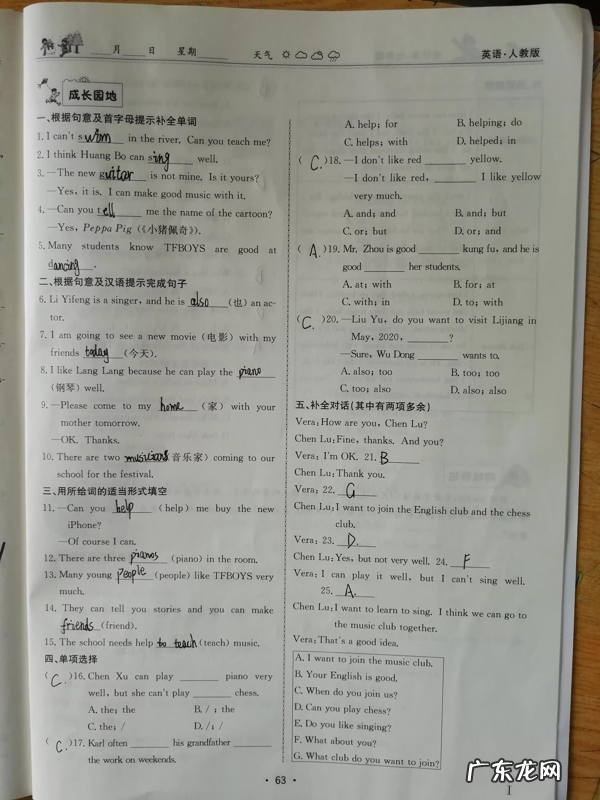 月 日 星期 天气
英语·人教版
成长园地
一、根据句意及首字母提示补全单词
1. I can't swim in the river. Can you teach me?
2. I think Huang Bo can sing well.
3. —The new guitar is not mine. Is it yours?
—Yes, it is. I can make good music with it.
4. —Can you tell me the name of the cartoon?
—Yes, Peppa Pig (《小猪佩奇》).
5. Many students know TFBOYS are good at
dancing.
二、根据句意及汉语提示完成句子
6. Li Yifeng is a singer, and he is also (也) an ac-
tor.
7. I am going to see a new movie (电影) with my
friends today (今天).
8. I like Lang Lang because he can play the piano
(钢琴) well.
9. —Please come to my home (家) with your
mother tomorrow.
—OK. Thanks.
10. There are two musicians 音乐家) coming to our
school for the festival.
三、用所给词的适当形式填空
11. —Can you help (help) me buy the new
iPhone?
—Of course I can.
12. There are three pianos (piano) in the room.
13. Many young people (people) like TFBOYS very
much.
14. They can tell you stories and you can make
friends (friend).
15. The school needs help to teach (teach) music.
四、单项选择
( C. )16. Chen Xu can play ______ piano very
well, but she can't play ______ chess.
A. the; the B. / ; the
C. the; / D. /; /
( C. )17. Karl often ______ his grandfather ______
the work on weekends.
A. help; for B. helping; do
C. helps; with D. helped; in
( C. )18. —I don't like red ______ yellow.
—I don't like red, ______ I like yellow
very much.
A. and; and B. and; but
C. or; but D. or; and
( A. )19. Mr. Zhou is good ______ kung fu, and he is
good ______ her students.
A. at; with B. for; at
C. with; in D. to; with
( C. )20. —Liu Yu, do you want to visit Lijiang in
May, 2020, ______?
—Sure, Wu Dong ______ wants to.
A. also; too B. too; too
C. too; also D. also; also
五、补全对话(其中有两项多余)
Vera: How are you, Chen Lu?
Chen Lu: Fine, thanks. And you?
Vera: I'm OK. 21. B
Chen Lu: Thank you.
Vera: 22. G
Chen Lu: I want to join the English club and the chess
club.
Vera: 23. D.
Chen Lu: Yes, but not very well. 24. F
Vera: I can play it well, but I can't sing well.
25. A.
Chen Lu: I want to learn to sing. I think we can go to
the music club together.
Vera: That's a good idea.
A. I want to join the music club.
B. Your English is good.
C. When do you join us?
D. Can you play chess?
E. Do you like singing?
F. What about you?
G. What club do you want to join?
· 63 ·
1
广东龙网